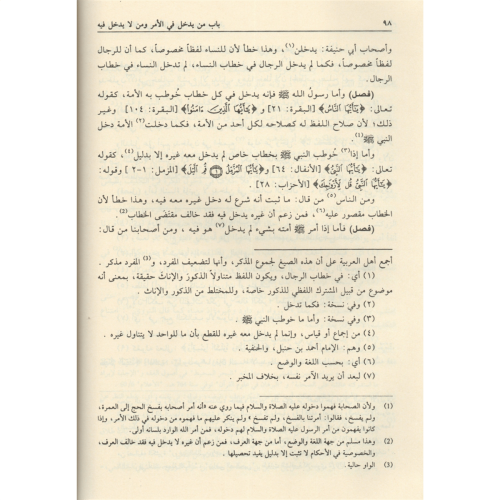 ٩٨ باب من يدخل في الأمر ومن لا يدخل فيه
وأصحاب أبي حنيفة: يدخلن(١)، وهذا خطأ لأن للنساء لفظاً مخصوصاً، كما أن للرجال
لفظاً مخصوصاً، فكما لم يدخل الرجال في خطاب النساء، لم تدخل النساء في خطاب
الرجال.
(فصل) وأما رسول الله ﷺ فإنه يدخل في كل خطاب خُوطب به الأمة، كقوله
تعالى: ﴿يَٰٓأَيُّهَا ٱلنَّاسُ﴾ [البقرة: ٢١] و ﴿يَٰٓأَيُّهَا ٱلَّذِينَ ءَامَنُواْ﴾ [البقرة: ١٠٤] وغير
ذلك؛ لأن صلاح اللفظ له كصلاحه لكل أحد من الأمة، فكما دخلت(٢) الأمة دخل
النبي ﷺ(١).
وأما إذا(٣) خُوطب النبي ﷺ بخطاب خاص لم يدخل معه غيره إلا بدليل(٤)، كقوله
تعالى: ﴿يَٰٓأَيُّهَا ٱلنَّبِيُّ﴾ [الأنفال: ٦٤] و﴿يَٰٓأَيُّهَا ٱلۡمُزَّمِّلُ ۝١ قُمِ ٱلَّيۡلَ﴾ [المزمل: ١-٢] وقوله:
﴿يَٰٓأَيُّهَا ٱلنَّبِيُّ قُل لِّأَزۡوَٰجِكَ﴾ [الأحزاب: ٢٨].
ومن الناس(٥) من قال: ما ثبت أنه شرع له دخل معه غيره فيه، وهذا خطأ لأن
الخطاب مقصور عليه(٦)، فمن زعم أن غيره يدخل فيه فقد خالف مقتضى الخطاب(2).
(فصل) فأما إذا أمر ﷺ أمته بشيء لم يدخل(٧) هو فيه، ومن أصحابنا من قال:
أجمع أهل العربية على أن هذه الصيغ لجموع المذكر، وأنها لتضعيف المفرد، و(3) المفرد مذكر.
(١) أي: في خطاب الرجال، ويكون اللفظ متناولاً الذكور والإناث حقيقة، بمعنى أنه
موضوع من قبيل المشترك اللفظي للذكور خاصة، وللمختلط من الذكور والإناث.
(٢) وفي نسخة: فكما تدخل.
(٣) وفي نسخة: وأما ما خوطب النبي ﷺ.
(٤) من إجماع أو قياس، وإنما لم يدخل معه غيره للقطع بأن ما للواحد لا يتناول غيره.
(٥) وهم: الإمام أحمد بن حنبل، والحنفية.
(٦) أي: بحسب اللغة والوضع.
(٧) لبعد أن يريد الآمر نفسه، بخلاف المخبر.
(1) ولأن الصحابة فهموا دخوله عليه الصلاة والسلام فيما روي عنه «أنه أمر أصحابه بفسخ الحج إلى العمرة،
ولم يفسخ، فقالوا: أمرتنا بالفسخ، ولم تفسخ» ولم ينكر عليهم ما فهموه من دخوله في ذلك الأمر، وإذا
كانوا يفهمون من أمر الرسول عليه الصلاة والسلام لهم دخوله، فمن أمر الله الوارد بلسانه أولى.
(2) وهذا مسلم من جهة اللغة والوضع، أما من جهة العرف، فمن زعم أن غيره لا يدخل فيه فقد خالف العرف،
والخصوصية في الأحكام لا تثبت إلا بدليل يفيد تحصيلها.
(3) الواو حالية.